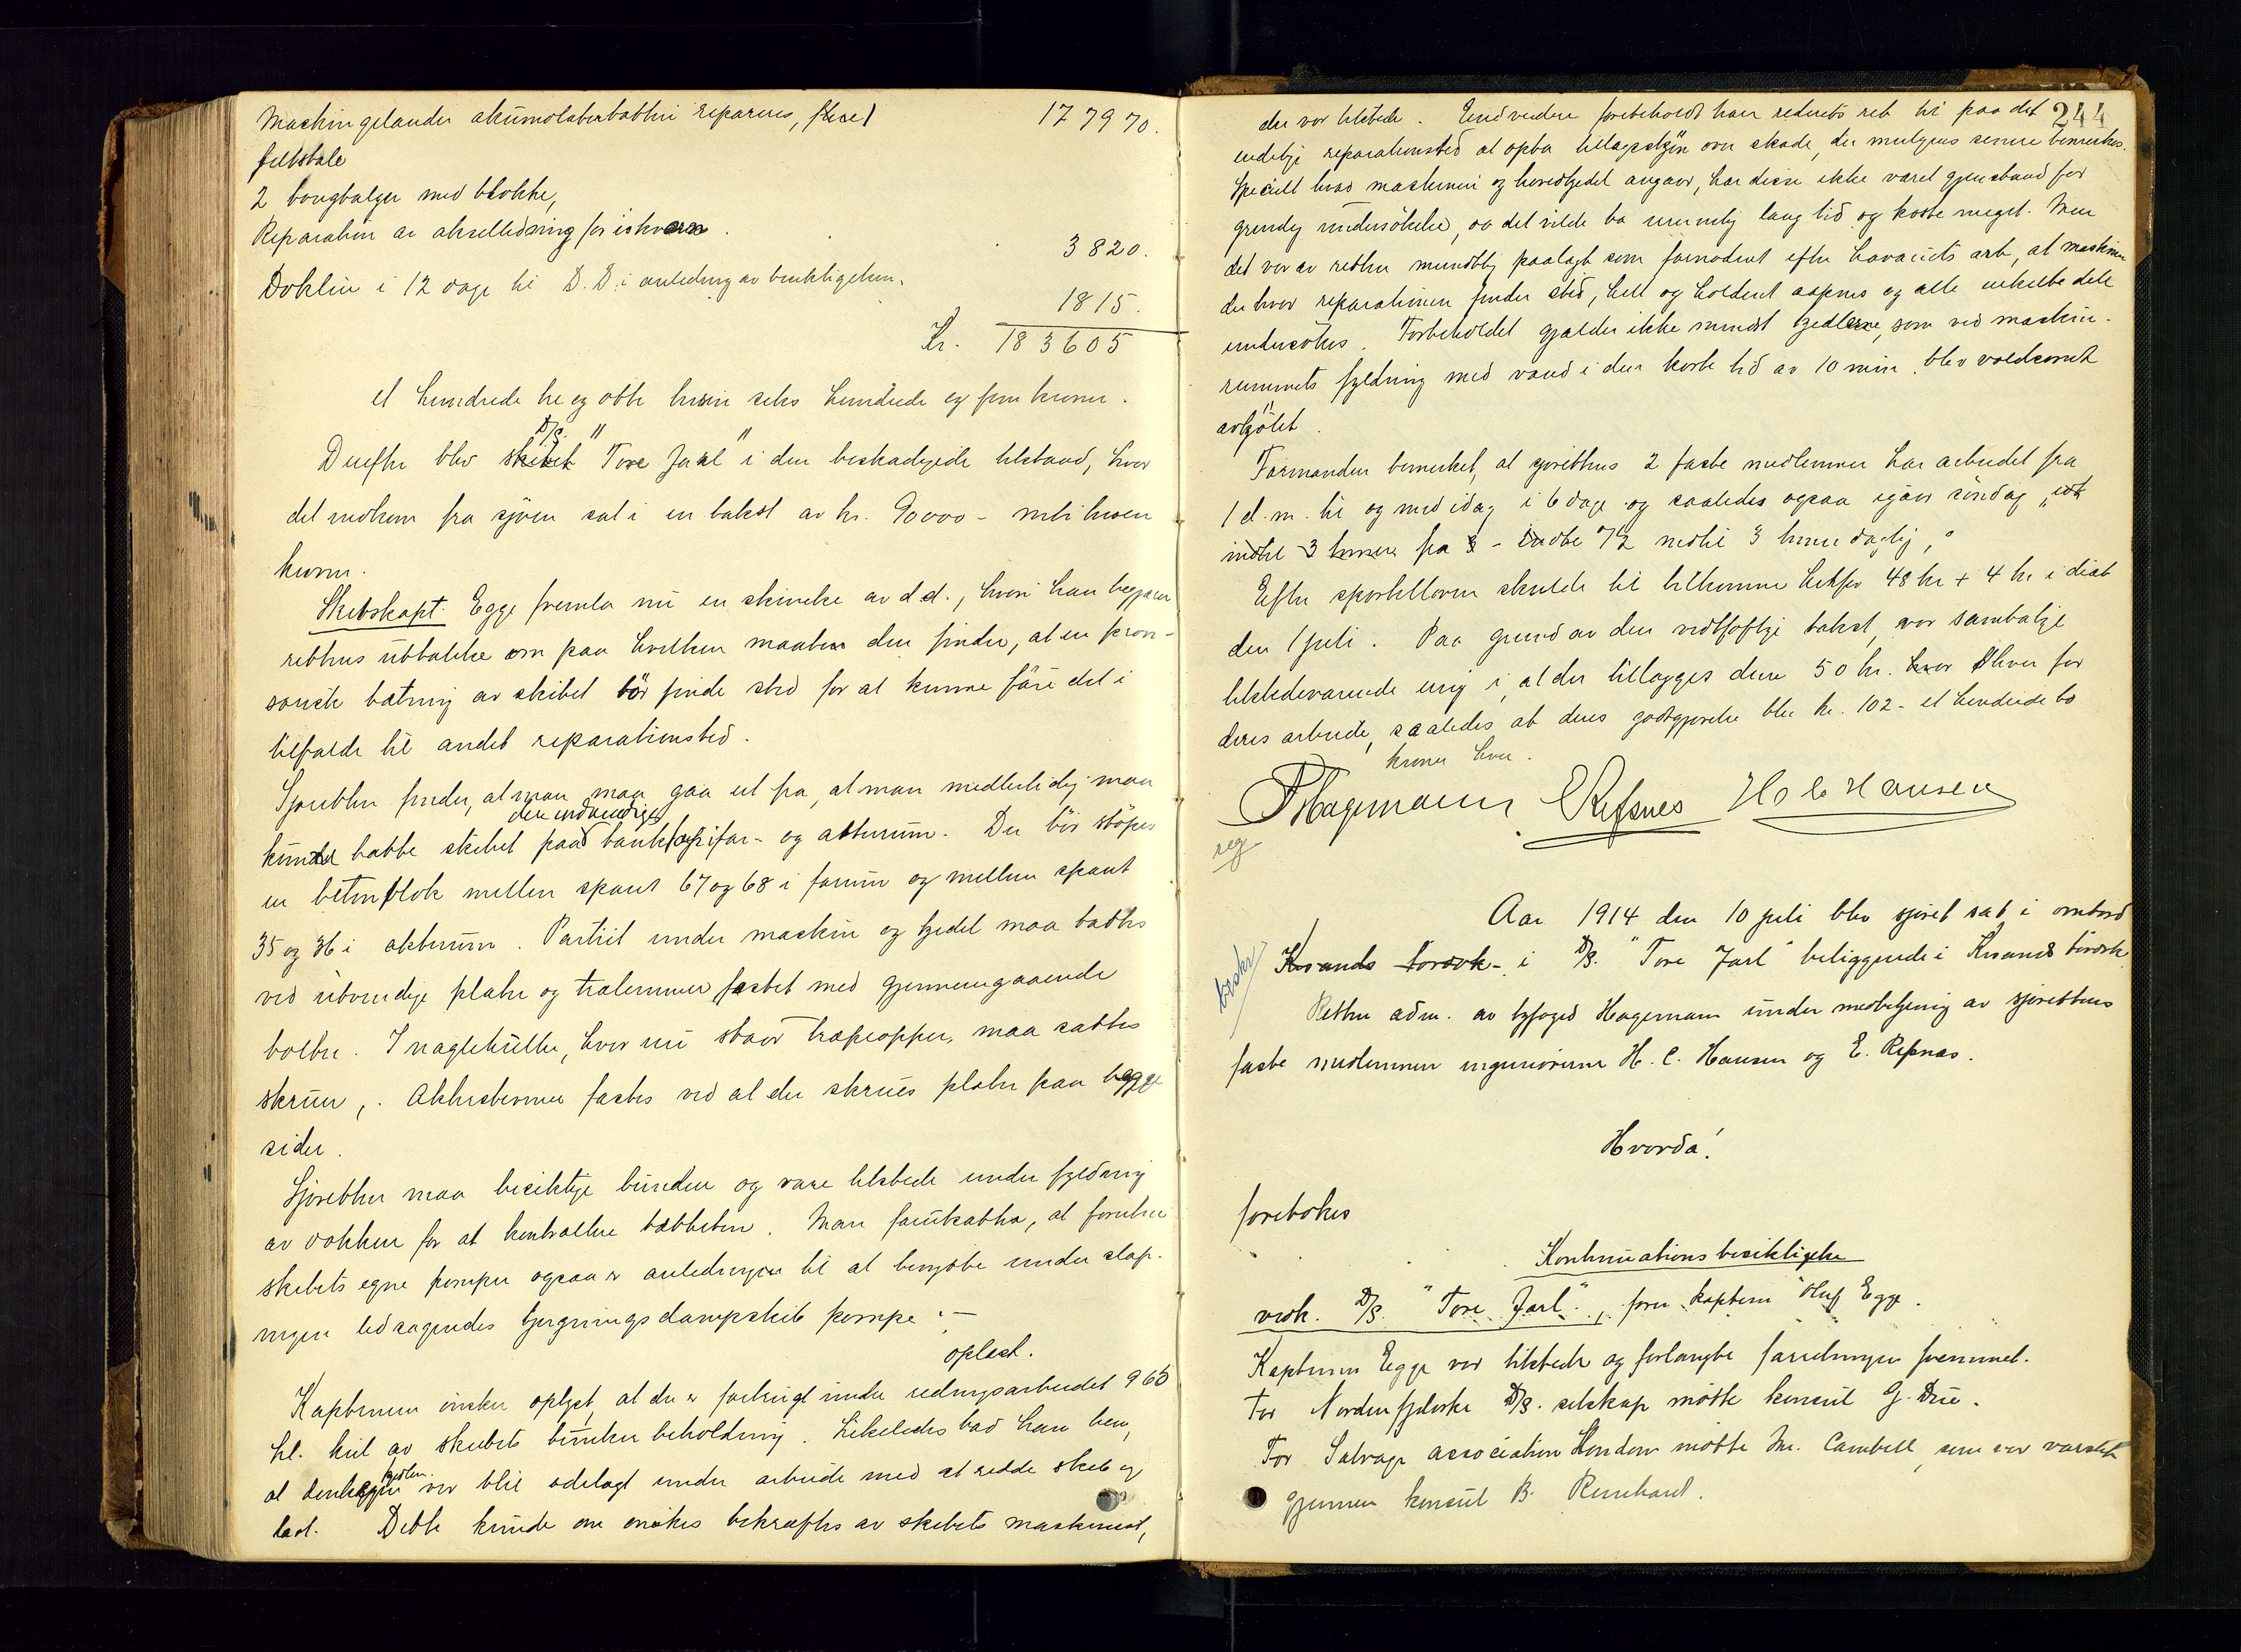 Maskingelander akumolatorbatteri repareres, 177970.
feltstole
2 bougbalger med blokke,
Reparation av akselledning for iskværn 3820.
Doklin i 12 dage til D. D. i anledning av besiktigelsen. 1815.
Kr. 183605
et hundrede tre og otti tusin seks hundrede og fem kroner.
D/S.
Derefter blev skibet "Tore Jarl" i den beskadigede tilstand, hvor
det indkom fra sjöen sat i en takst av kr. 90000 - nitti tusen
kroner.
Skibskapt. Egge fremla nu en skrivelse av d.d., hvori han begjærer
rettens uttalelse om paa hvilken maate den finder, at en provi-
sorisk tætning av skibet bör finde sted for at kunne före det i
tilfælde til andet reparationssted.
Sjøretten finder, at man maa gaa ut fra, at man midlertidig maa
den indvendige
kunde tætte skibet paa tanktop i for- og akterrum. Der bör stöpes
en betonblok mellem spant 67 og 68 i forrum og mellem spant
35 og 36 i akterrum. Partiet under maskin og kjedel maa tættes
ved utvendige plater og trælemmer fæstet med gjennemgaaende
bolter. I naglehuller, hvor nu staar træpropper, maa sættes
skruer,. Akterstevnen fæstes ved at der skrues plater paa begge
sider.
Sjøretten maa besiktige bunden og være tilstede under fyldning
av dokken for at kontrollere tætheten. Man forutsætter, at foruten
skibets egne pumper ogsaa er anledningen til at benytte under slæp-
ningen ledsagendes bjergningsdampskib pumpe.—
oplæst.
Kapteinen önsker oplyst, at der er forbrugt under redningsarbeidet 965
hl. kul av skibets bunker beholdning. Likeledes bad han bem,
kjölen
at var blit ödelagt under arbeide med at redde skib og
last. Dette kunde om önskes bekræftes av skibets maskinist,
244
der var tilstede. Endvidere forebeholdt han rederiets ret til paa det
endelige reparationssted at opta tillægsskjön over skade, der muligens senere bemerkes.
Specielt hvad maskineri og hovedkjedel angaar, har disse ikke været gjenstand for
grundig undersökelse, da det vilde ta urimelig lang tid og koste meget. Men
det var av retten mundtlig paalagt som fornödent efter havariets art, at maskinen
der hvor reparationen finder sted, helt og holdent aapnes og alle enkelte dele
undersökes. Forbeholdet gjælder ikke mindst kjedlerne, som ved maskin-
rummets fyldning med vand i den korte tid av 10 min. blev voldsomt
avkjölet.
Formanden bemerket, at sjørettens 2 faste medlemmer har arbeidet fra
1 d.m. til og med idag i 6 dage og saaledes ogsaa igaar söndag
indtil 3 timer fra 72 nedtil 3 timer daglig,
Efter sportelloven skulde til tilkomme hertfor 48 kr + 4 kr i diæt
den 1 juli. Paa grund av den vidtløftige takst, var samtlige
tilstedeværende enig i, at der tillægges dem 50 kr. hver for
deres arbeide, saaledes at deres godtgjørelse blir kr. 102 - et hundrede to
kroner hver.
Hagemann ERefsnes H. C. Hansen
reg
Aar 1914 den 10 juli blev sjøret sat i ombord
beskr
Krsands tørdok - i D/S. "Tore Jarl" beliggende i Krsands tørdok
Retten adm. av byfoged Hagemann under medbetjening av sjørettens
faste medlemmer ingeniørerne H. C. Hansen og E. Refsnæs.
Hvorda!
foretokes
Kontinuationsbesiktigelse
vedk. D/S. "Tore Jarl", fører kaptein Oluf Egge.
Kapteinen Egge var tilstede og forlangte forretningen fremmet.
For Nordenfjeldske D/S. selskap mötte konsul G. Due.
For Salvage association London mötte Mr. Cambell, som var varslet
gjennem konsul B. Reinhard.